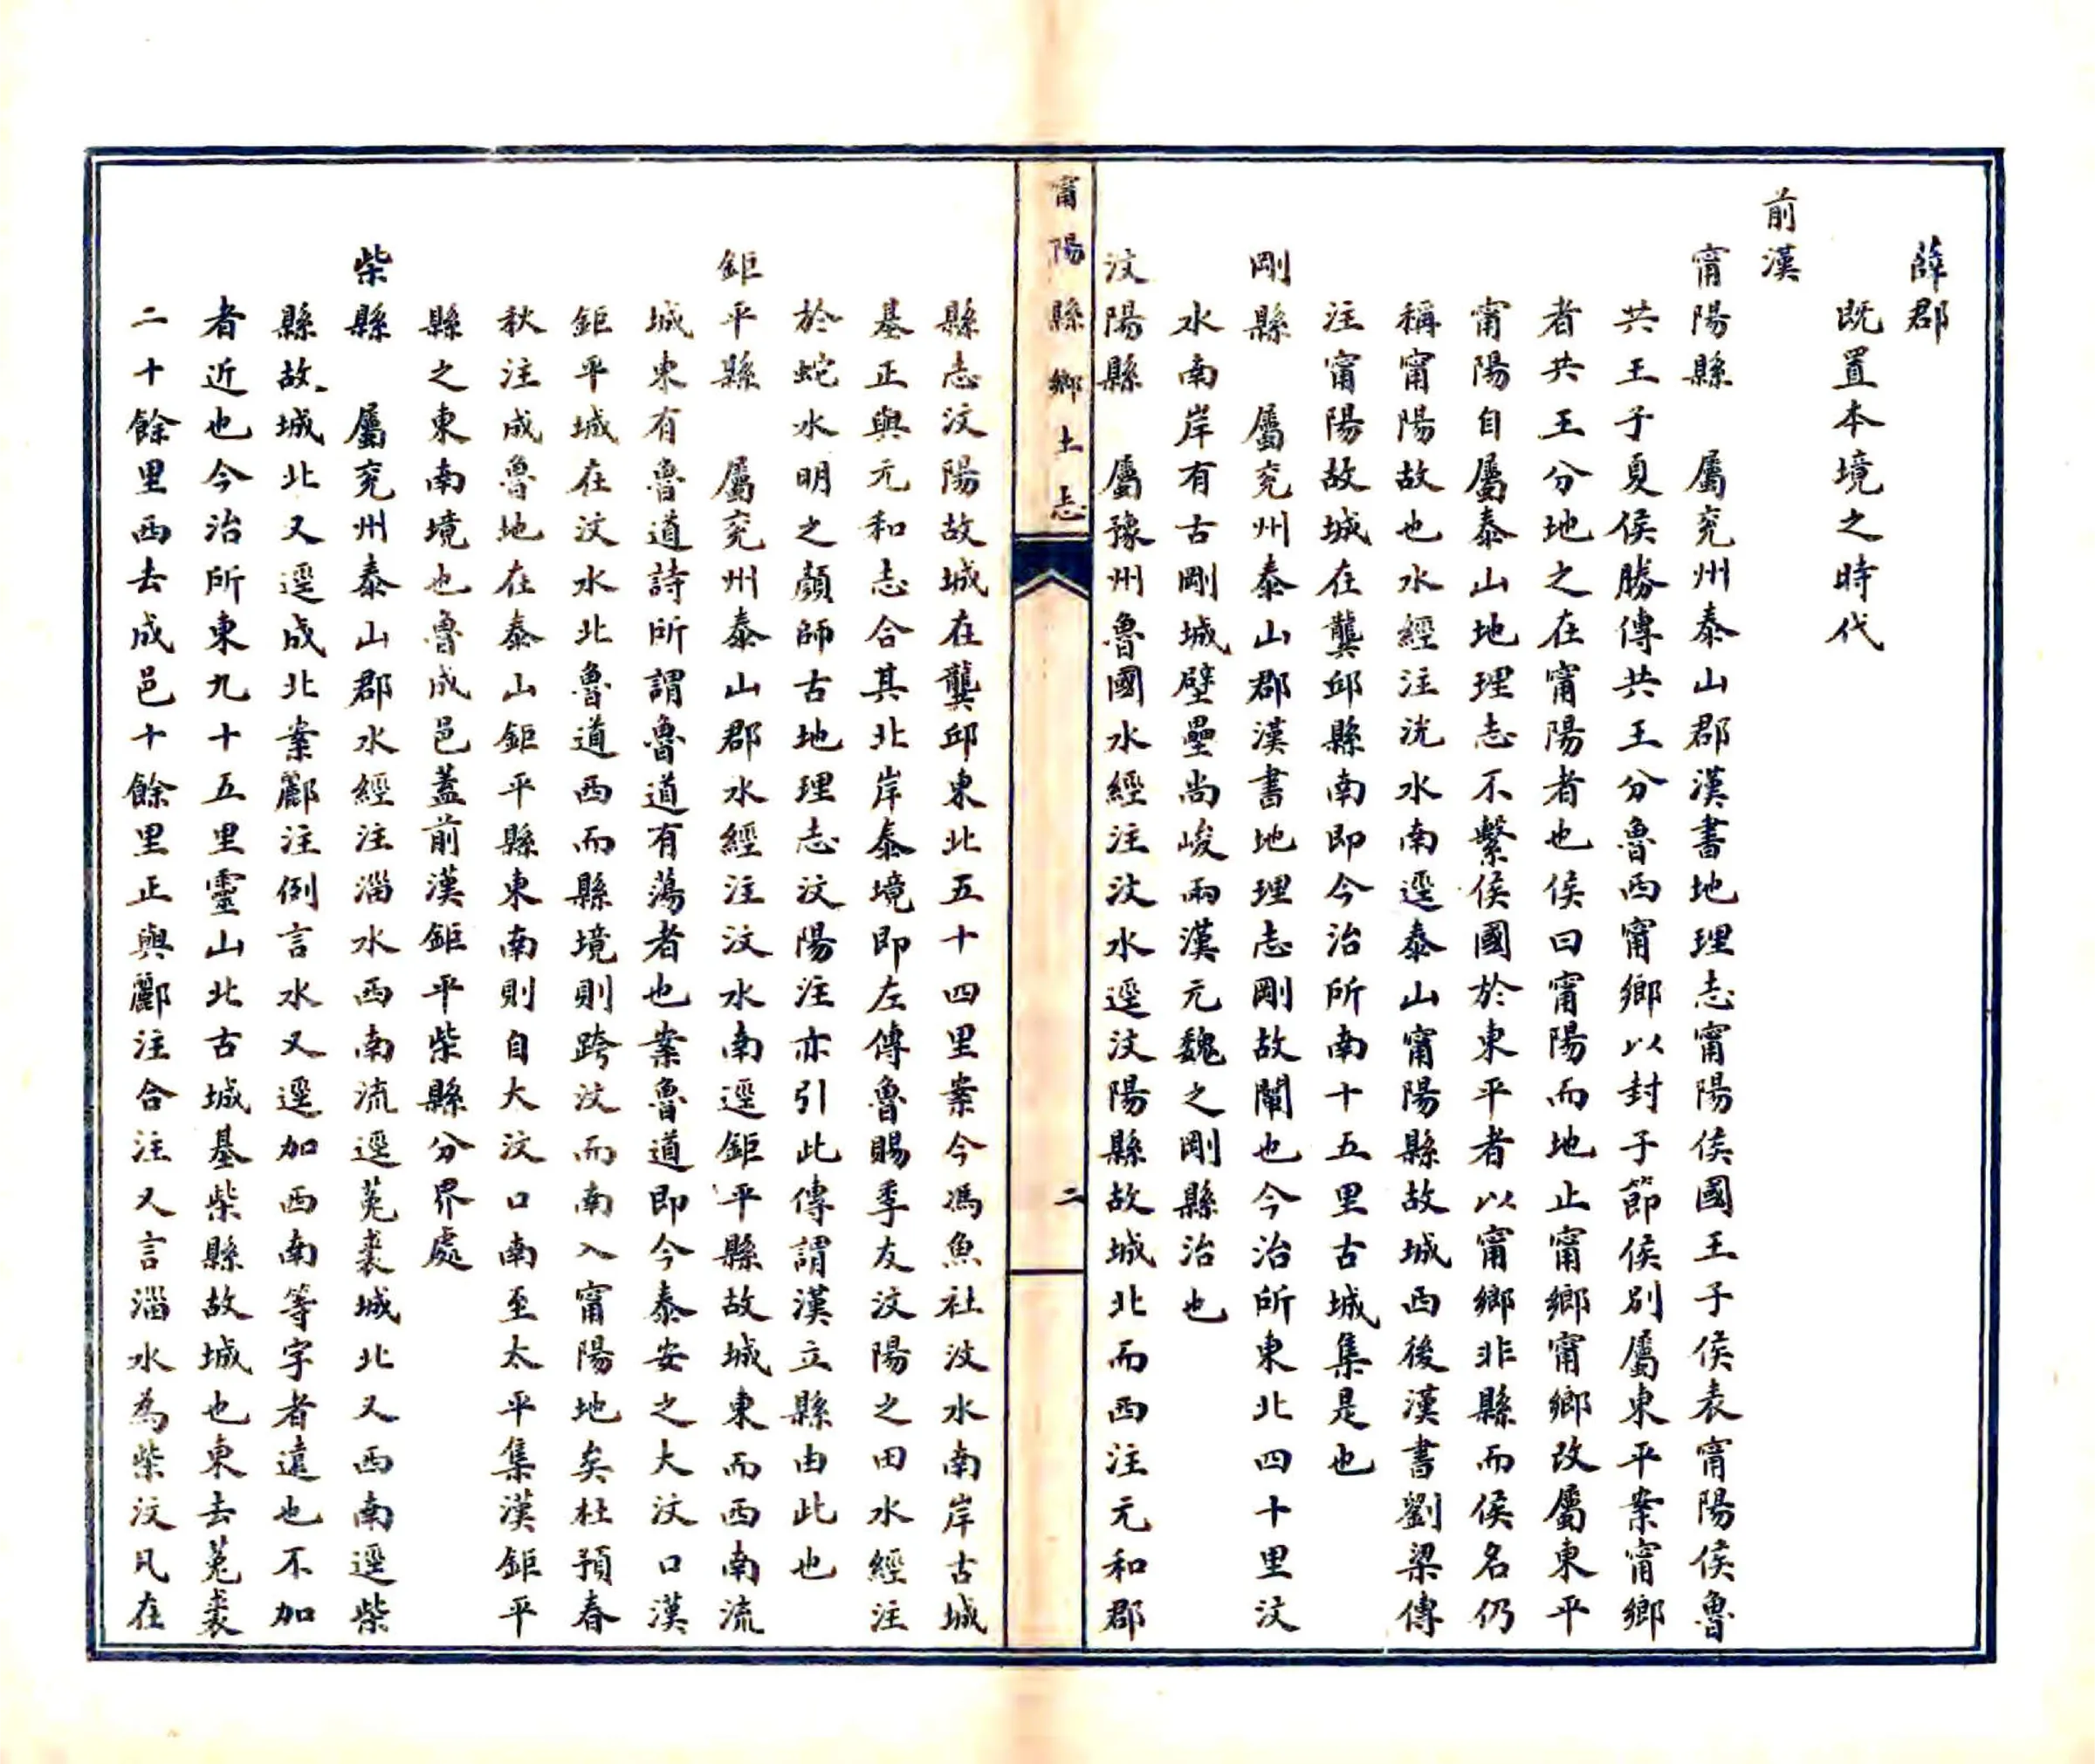 薛郡
既置本境之時代
前漢
甯陽縣　屬兖州泰山郡漢書地理志甯陽侯國王子侯表甯陽侯魯
共王子夏侯勝傳共王分魯西甯鄉以封子節侯别屬東平案甯鄉
者共王分地之在甯陽者也侯曰甯陽而地止甯鄉甯鄉改屬東平
甯陽自屬泰山地理志不繫侯國於東平者以甯鄉非縣而侯名仍
稱甯陽故也水經注洸水南逕泰山甯陽縣故城西後漢書劉梁傳
注甯陽故城在龔邱縣南即今治所南十五里古城集是也
剛縣　屬兖州泰山郡漢書地理志剛故闡也今治所東北四十里汶
水南岸有古剛城壁壘尚峻兩漢元魏之剛縣治也
汶陽縣　屬豫州魯國水經注汶水逕汶陽縣故城北而西注元和郡
甯陽縣鄉土志
二
縣志汶陽故城在龔邱東北五十四里案今馮魚社汶水南岸古城
基正與元和志合其北岸泰境即左傳魯賜季友汶陽之田水經注
於蛇水明之顏師古地理志汶陽注亦引此傳謂漢立縣由此也
鉅平縣　屬兖州泰山郡水經注汶水南逕鉅平縣故城東而西南流
城東有魯道詩所謂魯道有蕩者也案魯道即今泰安之大汶口漢
鉅平城在汶水北魯道西而縣境則跨汶而南入甯陽地矣杜預春
秋注成魯地在泰山鉅平縣東南則自大汶口南至太平集漢鉅平
縣之東南境也魯成邑蓋前漢鉅平柴縣分界處
柴縣　屬兖州泰山郡水經注淄水西南流逕菟裘城北又西南逕柴
縣故城北又逕成北案酈注例言水又逕加西南等字者遠也不加
者近也今治所東九十五里靈山北古城基柴縣故城也東去菟裘
二十餘里西去成邑十餘里正與酈注合注又言淄水為柴汶凡在